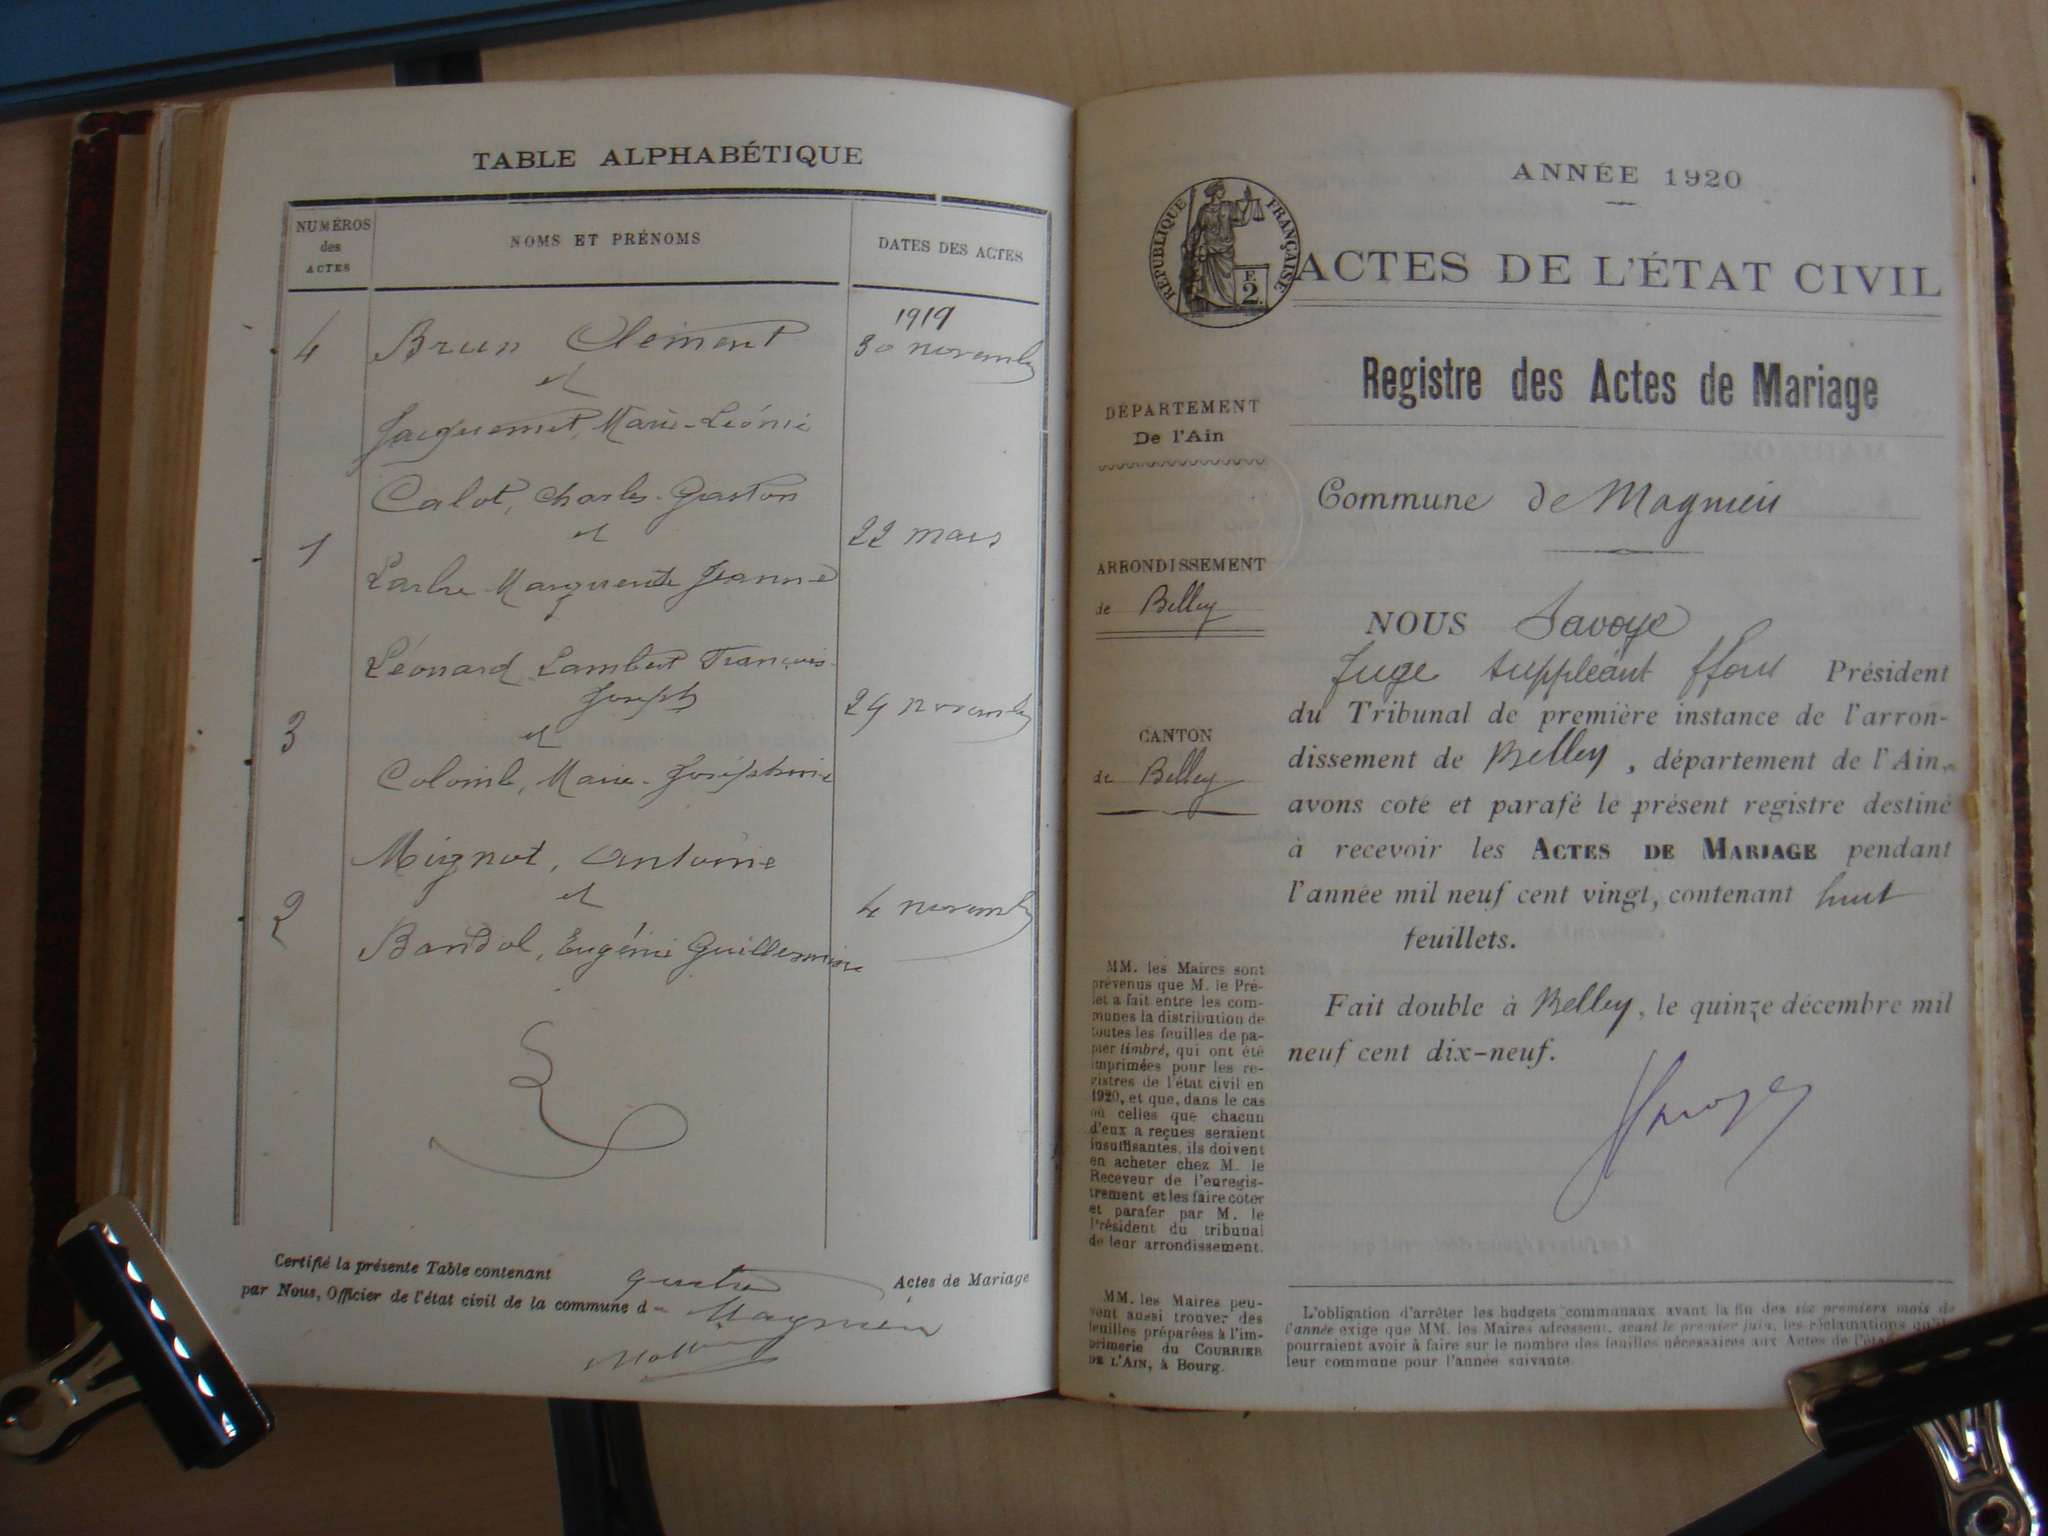 TABLE ALPHABÉTIQUE
NUMÉROS
des
ACTES
NOMS ET PRÉNOMS
DATES DES ACTES
1919
4 Brun Clément 30 novembre
et
Jacquemet, Marie-Léonie
Calot, Charles-Gaston
et
1 22 mars
Larbre Marguerite Jeanne
Léonard Lambert François-
Joseph
3 29 novembre
et
Colomb, Marie-Joséphine
Mignot, Antoine
et
2 4 novembre
Bandol, Eugénie Guillermine
Certifié la présente Table contenant quatre Actes de Mariage
par Nous, Officier de l'état civil de la commune d Magnieu
ANNÉE 1920
RÉPUBLIQUE FRANÇAISE
F.
2.
ACTES DE L'ÉTAT CIVIL
Registre des Actes de Mariage
DÉPARTEMENT
De l'Ain
Commune de Magnieu
ARRONDISSEMENT
de Belley
CANTON
de Belley
NOUS Savoye
Juge suppléant ffons Président
du Tribunal de première instance de l'arron-
dissement de Belley, département de l'Ain,
avons coté et parafé le présent registre destiné
à recevoir les ACTES DE MARIAGE pendant
l'année mil neuf cent vingt, contenant huit
feuillets.
Fait double à Belley, le quinze décembre mil
neuf cent dix-neuf.
Savoye
MM. les Maires sont
prévenus que M. le Pré-
fet a fait entre les com-
munes la distribution de
toutes les feuilles de pa-
pier timbré, qui ont été
imprimées pour les re-
gistres de l'état civil en
1920, et que, dans le cas
où celles que chacun
d'eux a reçues seraient
insuffisantes, ils doivent
en acheter chez M. le
Receveur de l'enregis-
trement et les faire coter
et parafer par M. le
Président du tribunal
de leur arrondissement.
MM. les Maires peu-
vent aussi trouver des
feuilles préparées à l'im-
primerie du COURRIER
DE L'AIN, à Bourg.
L'obligation d'arrêter les budgets communaux avant la fin des six premiers mois de
l'année exige que MM. les Maires adressent, avant le premier juin, les réclamations qu'ils
pourraient avoir à faire sur le nombre des feuilles nécessaires aux Actes de l'état
leur commune pour l'année suivante.